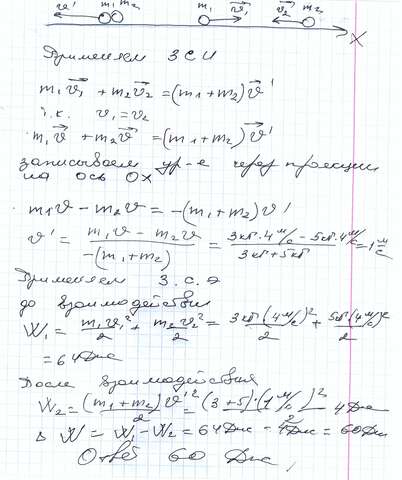 v' m₁ m₂ m₁ v⃗₁ v⃗₂ m₂
X
Применяем ЗСИ
m₁v⃗₁ + m₂v⃗₂ = (m₁+m₂)v⃗'
т.к. v₁=v₂
m₁v⃗ + m₂v⃗ = (m₁+m₂)v⃗'
записываем ур-е через проекции
на ось OX
m₁v − m₂v = −(m₁+m₂)v'
v' = (m₁v − m₂v)/(−(m₁+m₂)) = (3кг·4м/с − 5кг·4м/с)/(3кг+5кг) = 1 м/с
Применяем З.С.Э
до взаимодействия
W₁ = m₁v₁²/2 + m₂v₂²/2 = 3кг(4м/с)²/2 + 5кг(4м/с)²/2
= 64Дж
После взаимодействия
W₂ = (m₁+m₂)v'²/2 = (3+5)·(1м/с)²/2 = 4Дж
ΔW = W₁−W₂ = 64Дж − 4Дж = 60Дж
Ответ 60 Дж,